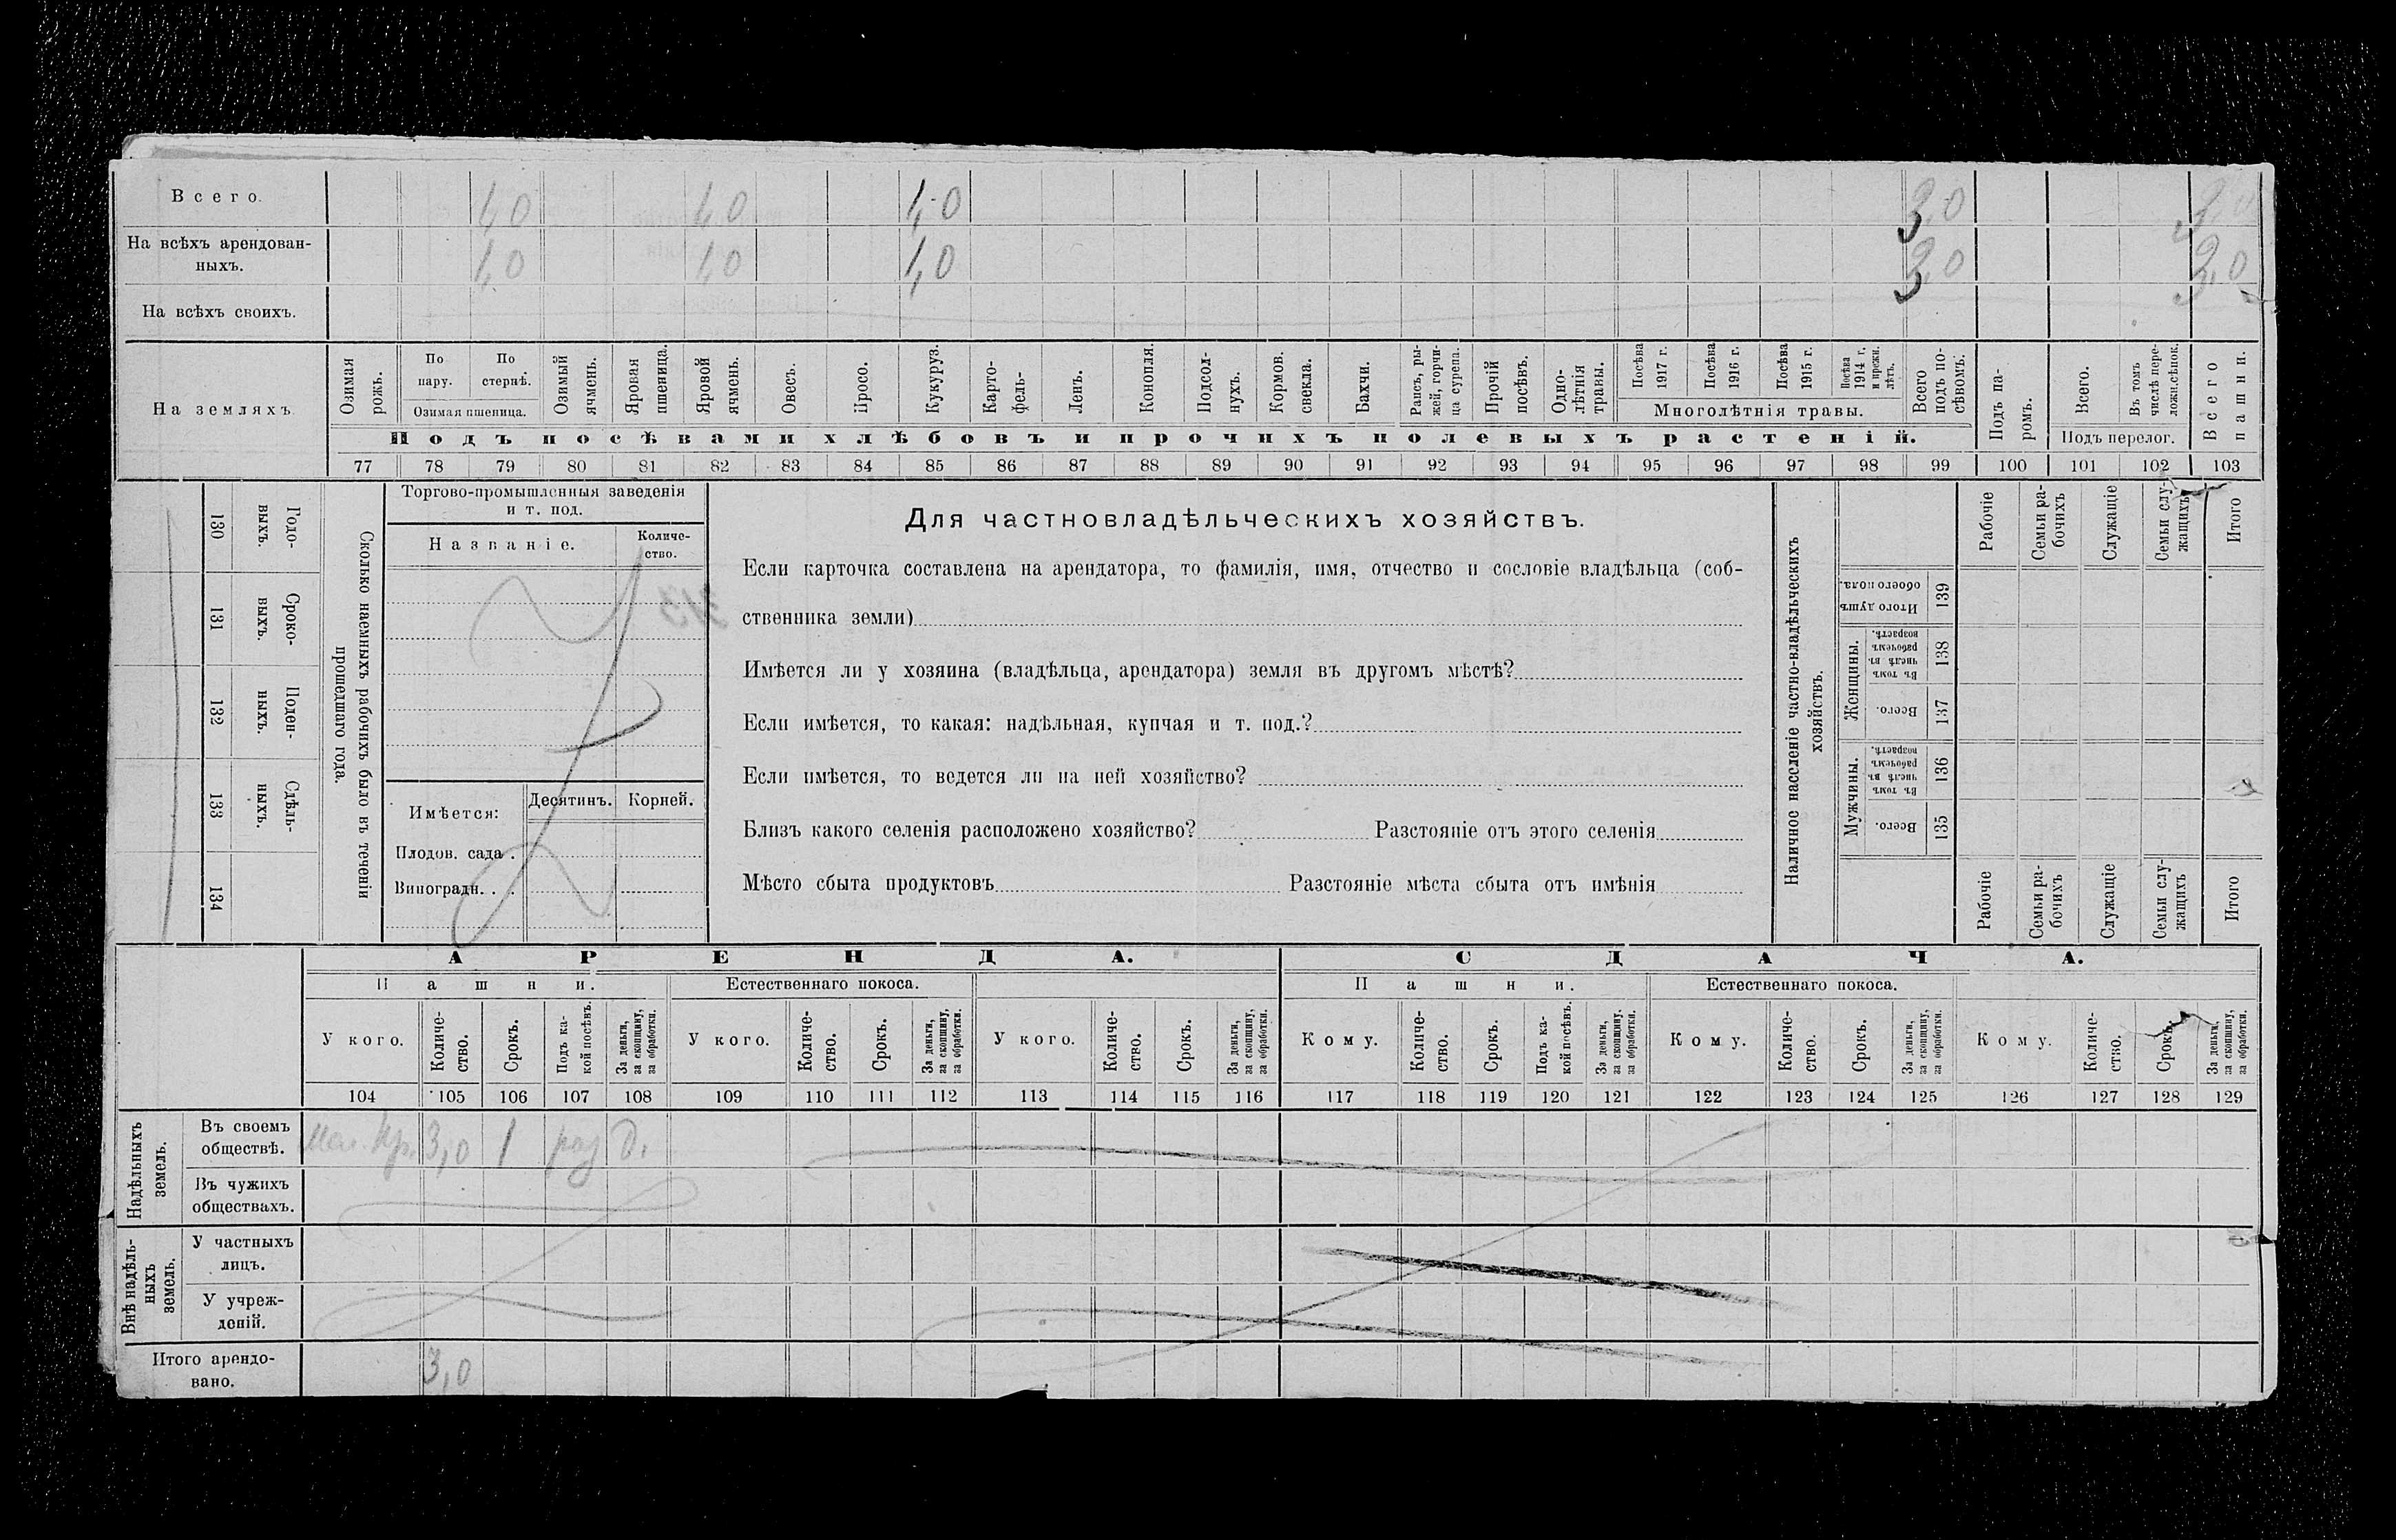 Всего. 1,0 1,0 1,0 3,0 3,0
На всѣхъ арендован-
ныхъ. 1,0 1,0 1,0 3,0 3,0
На всѣхъ своихъ.
На земляхъ.
Озимая рожь.
По пару.
По стернѣ.
Озимая пшеница.
Озимый ячмень.
Яровая пшеница.
Яровой ячмень.
Овесъ.
Просо.
Кукуруз.
Карто-
фель.
Ленъ.
Конопля.
Подсол-
нухъ.
Кормов.
свекла.
Бахчи.
Рапсъ, ры-
жей, горчи-
ца сурепа.
Прочій
посѣвъ.
Одно-
лѣтнія
травы.
Посѣва
1917 г.
Посѣва
1916 г.
Посѣва
1915 г.
Посѣва
1914 г.
и прежн.
лѣтъ.
Многолѣтнія травы.
Всего
подъ по-
сѣвомъ.
Подъ па-
ромъ.
Всего.
Въ томъ
числѣ пере-
лож.сѣнок.
Подъ перелог.
Всего
пашни.
Подъ посѣвами хлѣбовъ и прочихъ полевыхъ растеній.
77 78 79 80 81 82 83 84 85 86 87 88 89 90 91 92 93 94 95 96 97 98 99 100 101 102 103
130 Годо-
выхъ.
131 Сроко-
выхъ.
132 Поден-
ныхъ.
133 Сдѣль-
ныхъ.
134
Сколько наемныхъ рабочихъ было въ теченіи
прошедшаго года.
Торгово-промышленныя заведенія
и т. под.
Названіе.
Количе-
ство.
Имѣется: Десятинъ. Корней.
Плодов. сада .
Виноградн. . .
Для частновладѣльческихъ хозяйствъ.
Если карточка составлена на арендатора, то фамилія, имя, отчество и сословіе владѣльца (соб-
ственника земли)
Имѣется ли у хозяина (владѣльца, арендатора) земля въ другомъ мѣстѣ?
Если имѣется, то какая: надѣльная, купчая и т. под.?
Если имѣется, то ведется ли на ней хозяйство?
Близъ какого селенія расположено хозяйство? Разстояніе отъ этого селенія
Мѣсто сбыта продуктовъ Разстояніе мѣста сбыта отъ имѣнія
Наличное населеніе частно-владѣльческихъ
хозяйствъ.
Рабочіе
Семьи ра-
бочихъ
Служащіе
Семьи слу-
жащихъ
Итого
Итого душъ
обоего пола.
139
Женщины.
Въ томъ
числѣ въ
рабочемъ
возрастѣ.
138
Всего.
137
Мужчины.
Въ томъ
числѣ въ
рабочемъ
возрастѣ.
136
Всего.
135
Рабочіе
Семьи ра-
бочихъ
Служащіе
Семьи слу-
жащихъ
Итого
АРЕНДА. СДАЧА.
Пашни. Естественнаго покоса. Пашни. Естественнаго покоса.
У кого.
Количе-
ство.
Срокъ.
Подъ ка-
кой посѣвъ.
За деньги,
за скопщину,
за обработки.
У кого.
Количе-
ство.
Срокъ.
За деньги,
за скопщину,
за обработки.
У кого.
Количе-
ство.
Срокъ.
За деньги,
за скопщину,
за обработки.
Кому.
Количе-
ство.
Срокъ.
Подъ ка-
кой посѣвъ.
За деньги,
за скопщину,
за обработки.
Кому.
Количе-
ство.
Срокъ.
За деньги,
за скопщину,
за обработки.
Кому.
Количе-
ство.
Срокъ.
За деньги,
за скопщину,
за обработки.
104 105 106 107 108 109 110 111 112 113 114 115 116 117 118 119 120 121 122 123 124 125 126 127 128 129
Надѣльныхъ
земель.
Въ своемъ
обществѣ. 3,0 1 раз д.
Въ чужихъ
обществахъ.
Внѣ надѣль-
ныхъ
земель.
У частныхъ
лицъ.
У учреж-
деній.
Итого арендо-
вано. 3,0